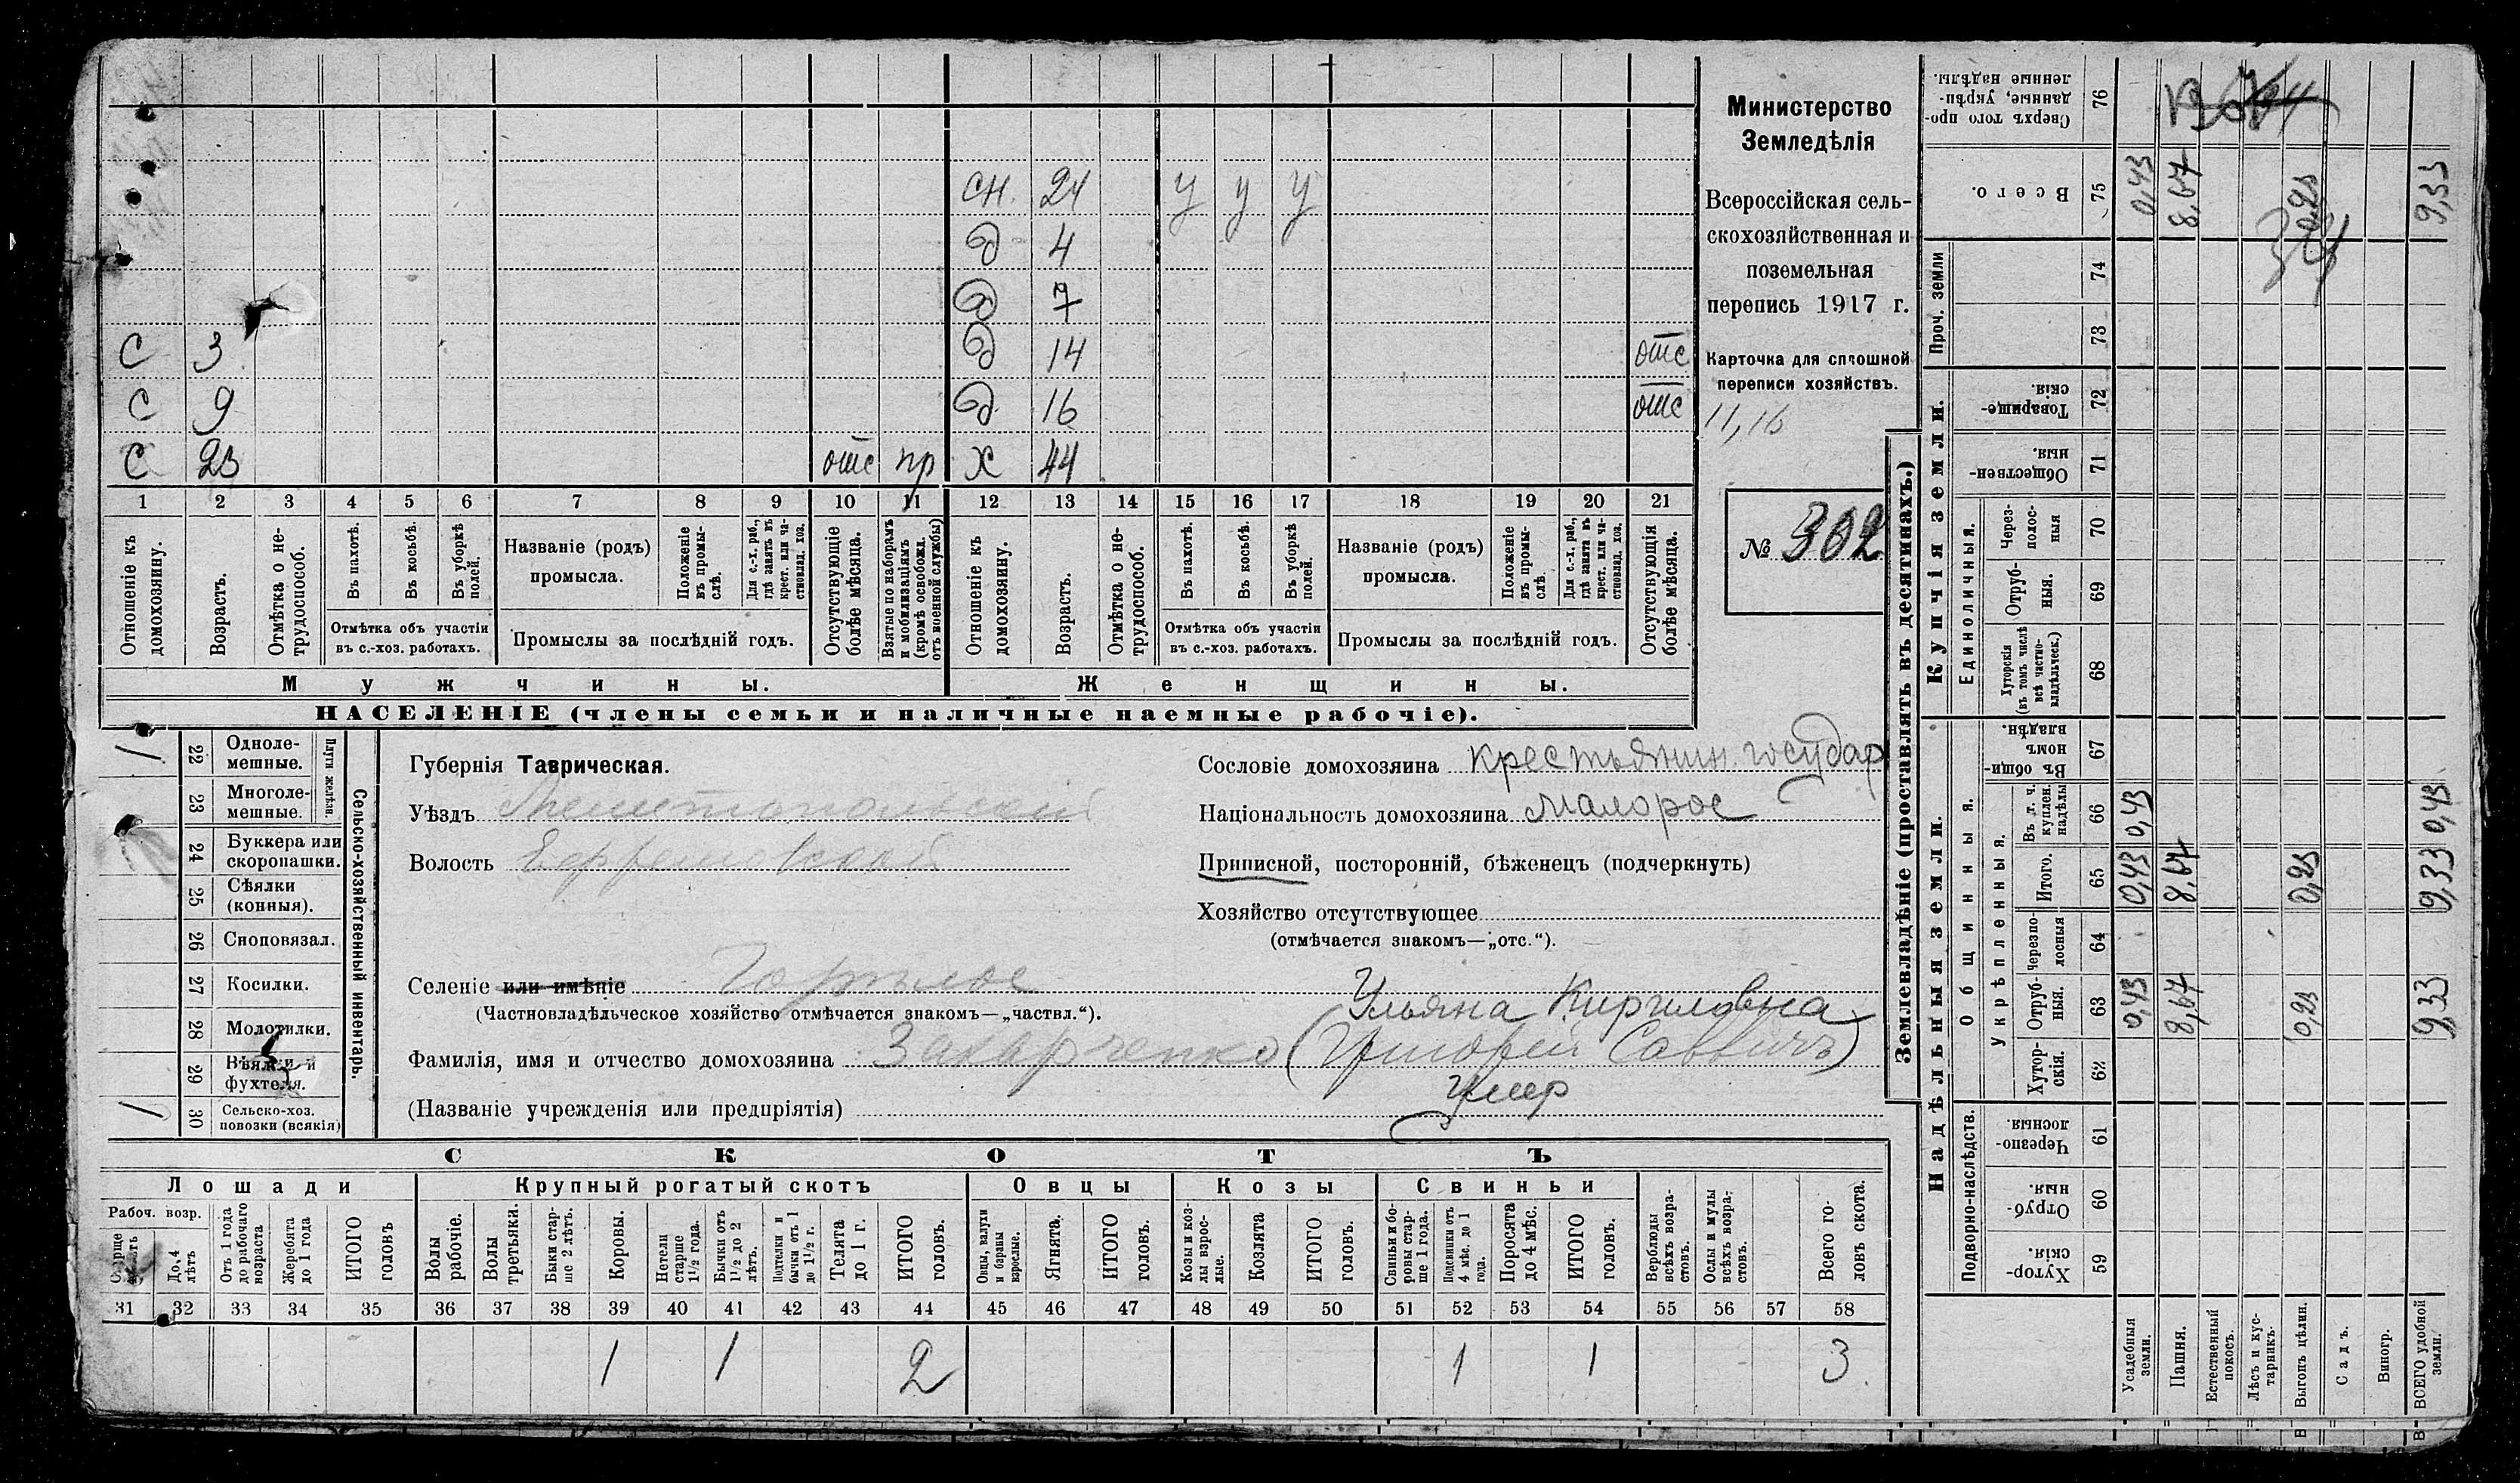 Министерство
Земледѣлія
Всероссійская сель-
скохозяйственная и
поземельная
перепись 1917 г.
Карточка для сплошной
переписи хозяйствъ.
11,16
№ 302
сн. 24 у у у
д 4
д 7
С 3 д 14 отс
С 9 д 16 отс
С 23 отс пр х 44
1 2 3 4 5 6 7 8 9 10 11 12 13 14 15 16 17 18 19 20 21
Отношеніе къ домохозяину.
Возрастъ.
Отмѣтка о не-трудоспособ.
Въ пахотѣ.
Въ косьбѣ.
Въ уборкѣ полей.
Отмѣтка объ участіи
въ с.-хоз. работахъ.
Названіе (родъ)
промысла.
Положеніе въ промы-слѣ.
Для с.-х. раб., гдѣ занятъ въ крест. или ча-стновлад. хоз.
Промыслы за послѣдній годъ.
Отсутствующіе болѣе мѣсяца.
Взятые по наборамъ и мобилизаціямъ (кромѣ освобожд. отъ военной службы)
Отношеніе къ домохозяину.
Возрастъ.
Отмѣтка о не-трудоспособ.
Въ пахотѣ.
Въ косьбѣ.
Въ уборкѣ полей.
Отмѣтка объ участіи
въ с.-хоз. работахъ.
Названіе (родъ)
промысла.
Положеніе въ промы-слѣ.
Для с.-х. раб., гдѣ занята въ крест. или ча-стновлад. хоз.
Промыслы за послѣдній годъ.
Отсутствующія болѣе мѣсяца.
Мужчины. Женщины.
НАСЕЛЕНІЕ (члены семьи и наличные наемные рабочіе).
Сельско-хозяйственный инвентарь.
Плуги желѣзн.
1 22 Одноле-мешные.
23 Многоле-мешные.
24 Буккера или скоропашки.
25 Сѣялки (конныя).
26 Сноповязал.
27 Косилки.
28 Молотилки.
29 Вѣялки и фухтеля.
1 30 Сельско-хоз. повозки (всякія)
Губернія Таврическая.
Уѣздъ Мелитопольскій
Волость Ефремовской
Селеніе или имѣніе Горѣлое
(Частновладѣльческое хозяйство отмѣчается знакомъ—„частвл.“).
Фамилія, имя и отчество домохозяина Захарченко (Григорій Саввичъ)
(Названіе учрежденія или предпріятія)
Сословіе домохозяина крестьянин. государ
Національность домохозяина Малорос
Приписной, посторонній, бѣженецъ (подчеркнуть)
Хозяйство отсутствующее
(отмѣчается знакомъ—„отс.“).
Ульяна Кириловна
умер
СКОТЪ
Лошади Крупный рогатый скотъ Овцы Козы Свиньи
Рабоч. возр.
До 4 лѣтъ
Отъ 1 года до рабочаго возраста
Жеребята до 1 года
ИТОГО головъ
Волы рабочіе.
Волы третьяки.
Быки стар-ше 2 лѣтъ.
Коровы.
Нетели старше 1½ года.
Бычки отъ 1½ до 2 лѣтъ.
Подтелки и бычки отъ 1 до 1½ г.
Телята до 1 г.
ИТОГО головъ.
Овцы, валухи и бараны взрослые.
Ягнята.
ИТОГО головъ.
Козы и коз-лы взрос-лые.
Козлята
ИТОГО головъ.
Свиньи и бо-ровы стар-ше 1 года.
Подсвинки отъ 4 мѣс. до 1 года.
Поросята до 4 мѣс.
ИТОГО головъ.
Верблюды всѣхъ возра-стовъ.
Ослы и мулы всѣхъ возра-стовъ.
Всего го-ловъ скота.
31 32 33 34 35 36 37 38 39 40 41 42 43 44 45 46 47 48 49 50 51 52 53 54 55 56 57 58
1 1 2 1 1 3
Землевладѣніе (проставлять въ десятинахъ.)
Надѣльныя земли. Купчія земли. Проч. земли
Подворно-наслѣдств.
Общинныя.
Укрѣпленныя.
Единоличныя.
59 Хутор-скія.
60 Отруб-ныя.
61 Черезпо-лосныя.
62 Хутор-скія.
63 Отруб-ныя. 0,43 8,67 0,23 9,33
64 Черезпо-лосныя
65 Итого. 0,43 8,67 0,23 9,33
66 Въ т. ч. куплен. надѣлы 0,43 0,43
67 Въ общи-номъ владѣн.
68 Хуторскія (въ томъ числѣ всѣ частно-владѣльческ.)
69 Отруб-ныя.
70 Через-полос-ныя
71 Обществен-ныя.
72 Товарище-скія.
73
74
75 Всего. 0,43 8,67 0,23 9,33
76 Сверхъ того про-данные, укрѣп-ленные надѣлы.
Усадебныя земли.
Пашня.
Естественный покосъ.
Лѣсъ и кус-тарникъ.
Выгонъ цѣлин.
Садъ.
Виногр.
ВСЕГО удобной земли.